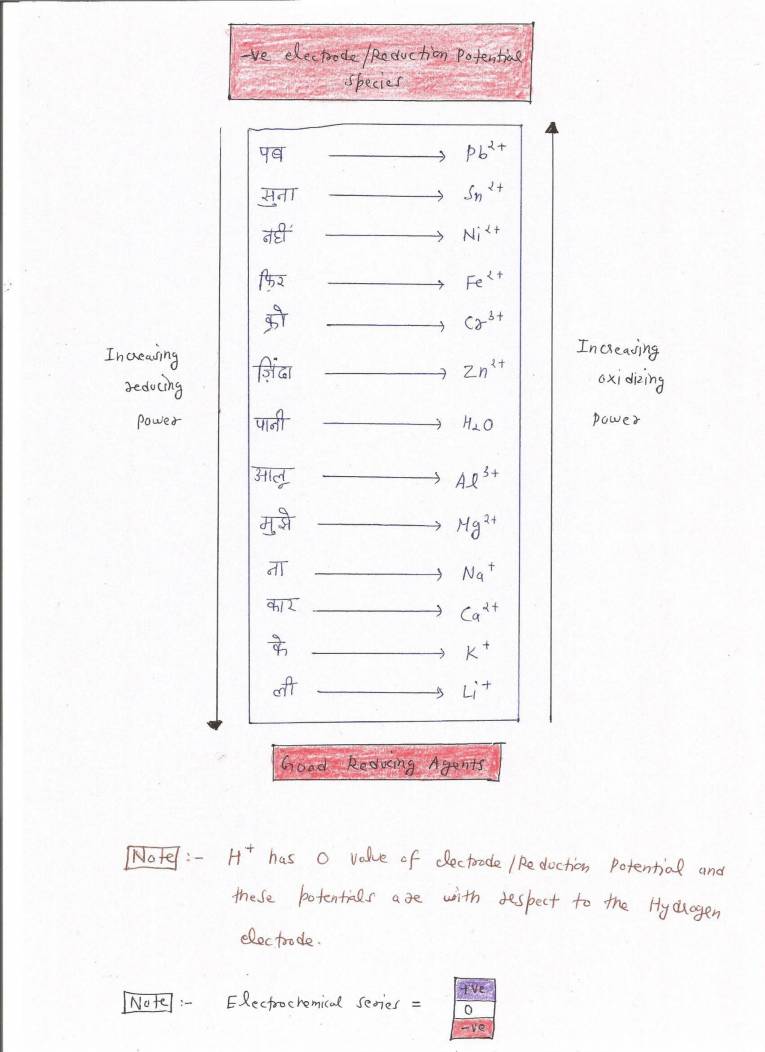 -ve electrode/Reduction Potential
species
पब → Pb²⁺
सुना → Sn²⁺
नहीं → Ni²⁺
फ़िर → Fe²⁺
क्रो → Cr³⁺
ज़िंदा → Zn²⁺
पानी → H₂O
आलू → Al³⁺
मुझे → Mg²⁺
ना → Na⁺
कार → Ca²⁺
के → K⁺
ली → Li⁺
Increasing
reducing
power
Increasing
oxidizing
power
Good Reducing Agents
Note :- H⁺ has 0 value of electrode/Reduction Potential and
these potentials are with respect to the Hydrogen
electrode.
Note :- Electrochemical series =
+ve
0
-ve